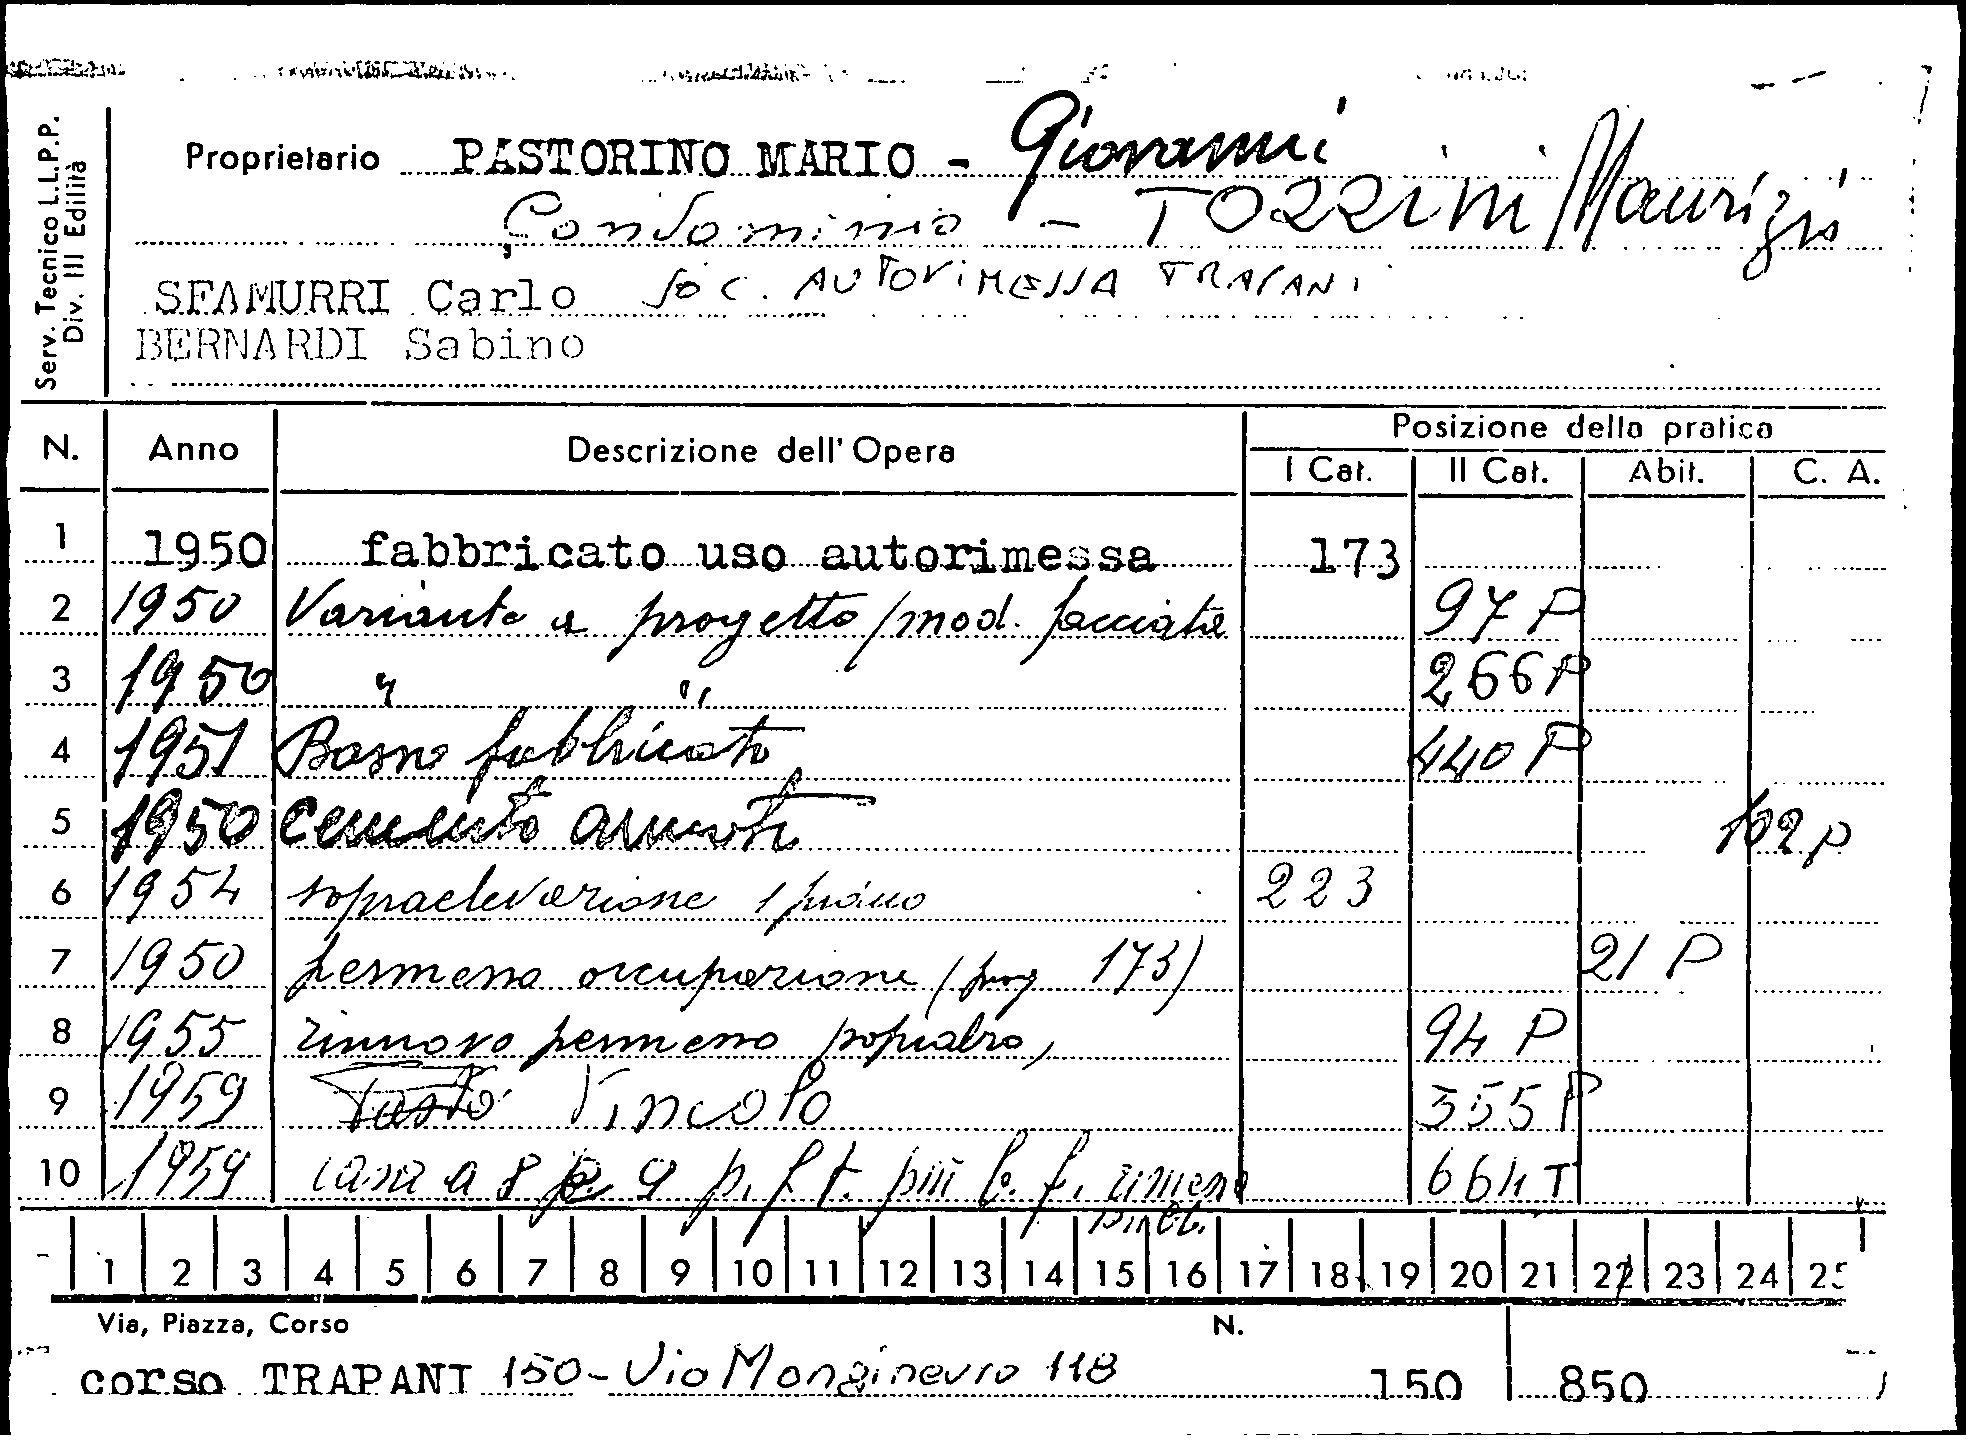 Serv. Tecnico L.L.P.P.
Div. III Edilità
Proprietario PASTORINO MARIO - Giovanni
Condominio - TOZZINI Maurizio
SFAMURRI Carlo SOC. AUTORIMESSA TRAPANI
BERNARDI Sabino
N. Anno Descrizione dell' Opera Posizione della pratica
I Cat. II Cat. Abit. C. A.
1 1950 fabbricato uso autorimessa 173
2 1950 Variante a progetto / mod. facciate 97 P
3 1950 " " 266 P
4 1951 Basso fabbricato 440 P
5 1950 Cemento armato 102 P
6 1954 sopraelevazione 1 piano 223
7 1950 permesso occupazione (prog 173) 21 P
8 1955 rinnovo permesso 94 P
9 1959 Vincolo 355 P
10 1959 casa a 8 e 9 p. f. t. più b. f. 664 T
1 2 3 4 5 6 7 8 9 10 11 12 13 14 15 16 17 18 19 20 21 22 23 24 25
Via, Piazza, Corso N.
corso TRAPANI 150 - Via Monginevro 118 150 850